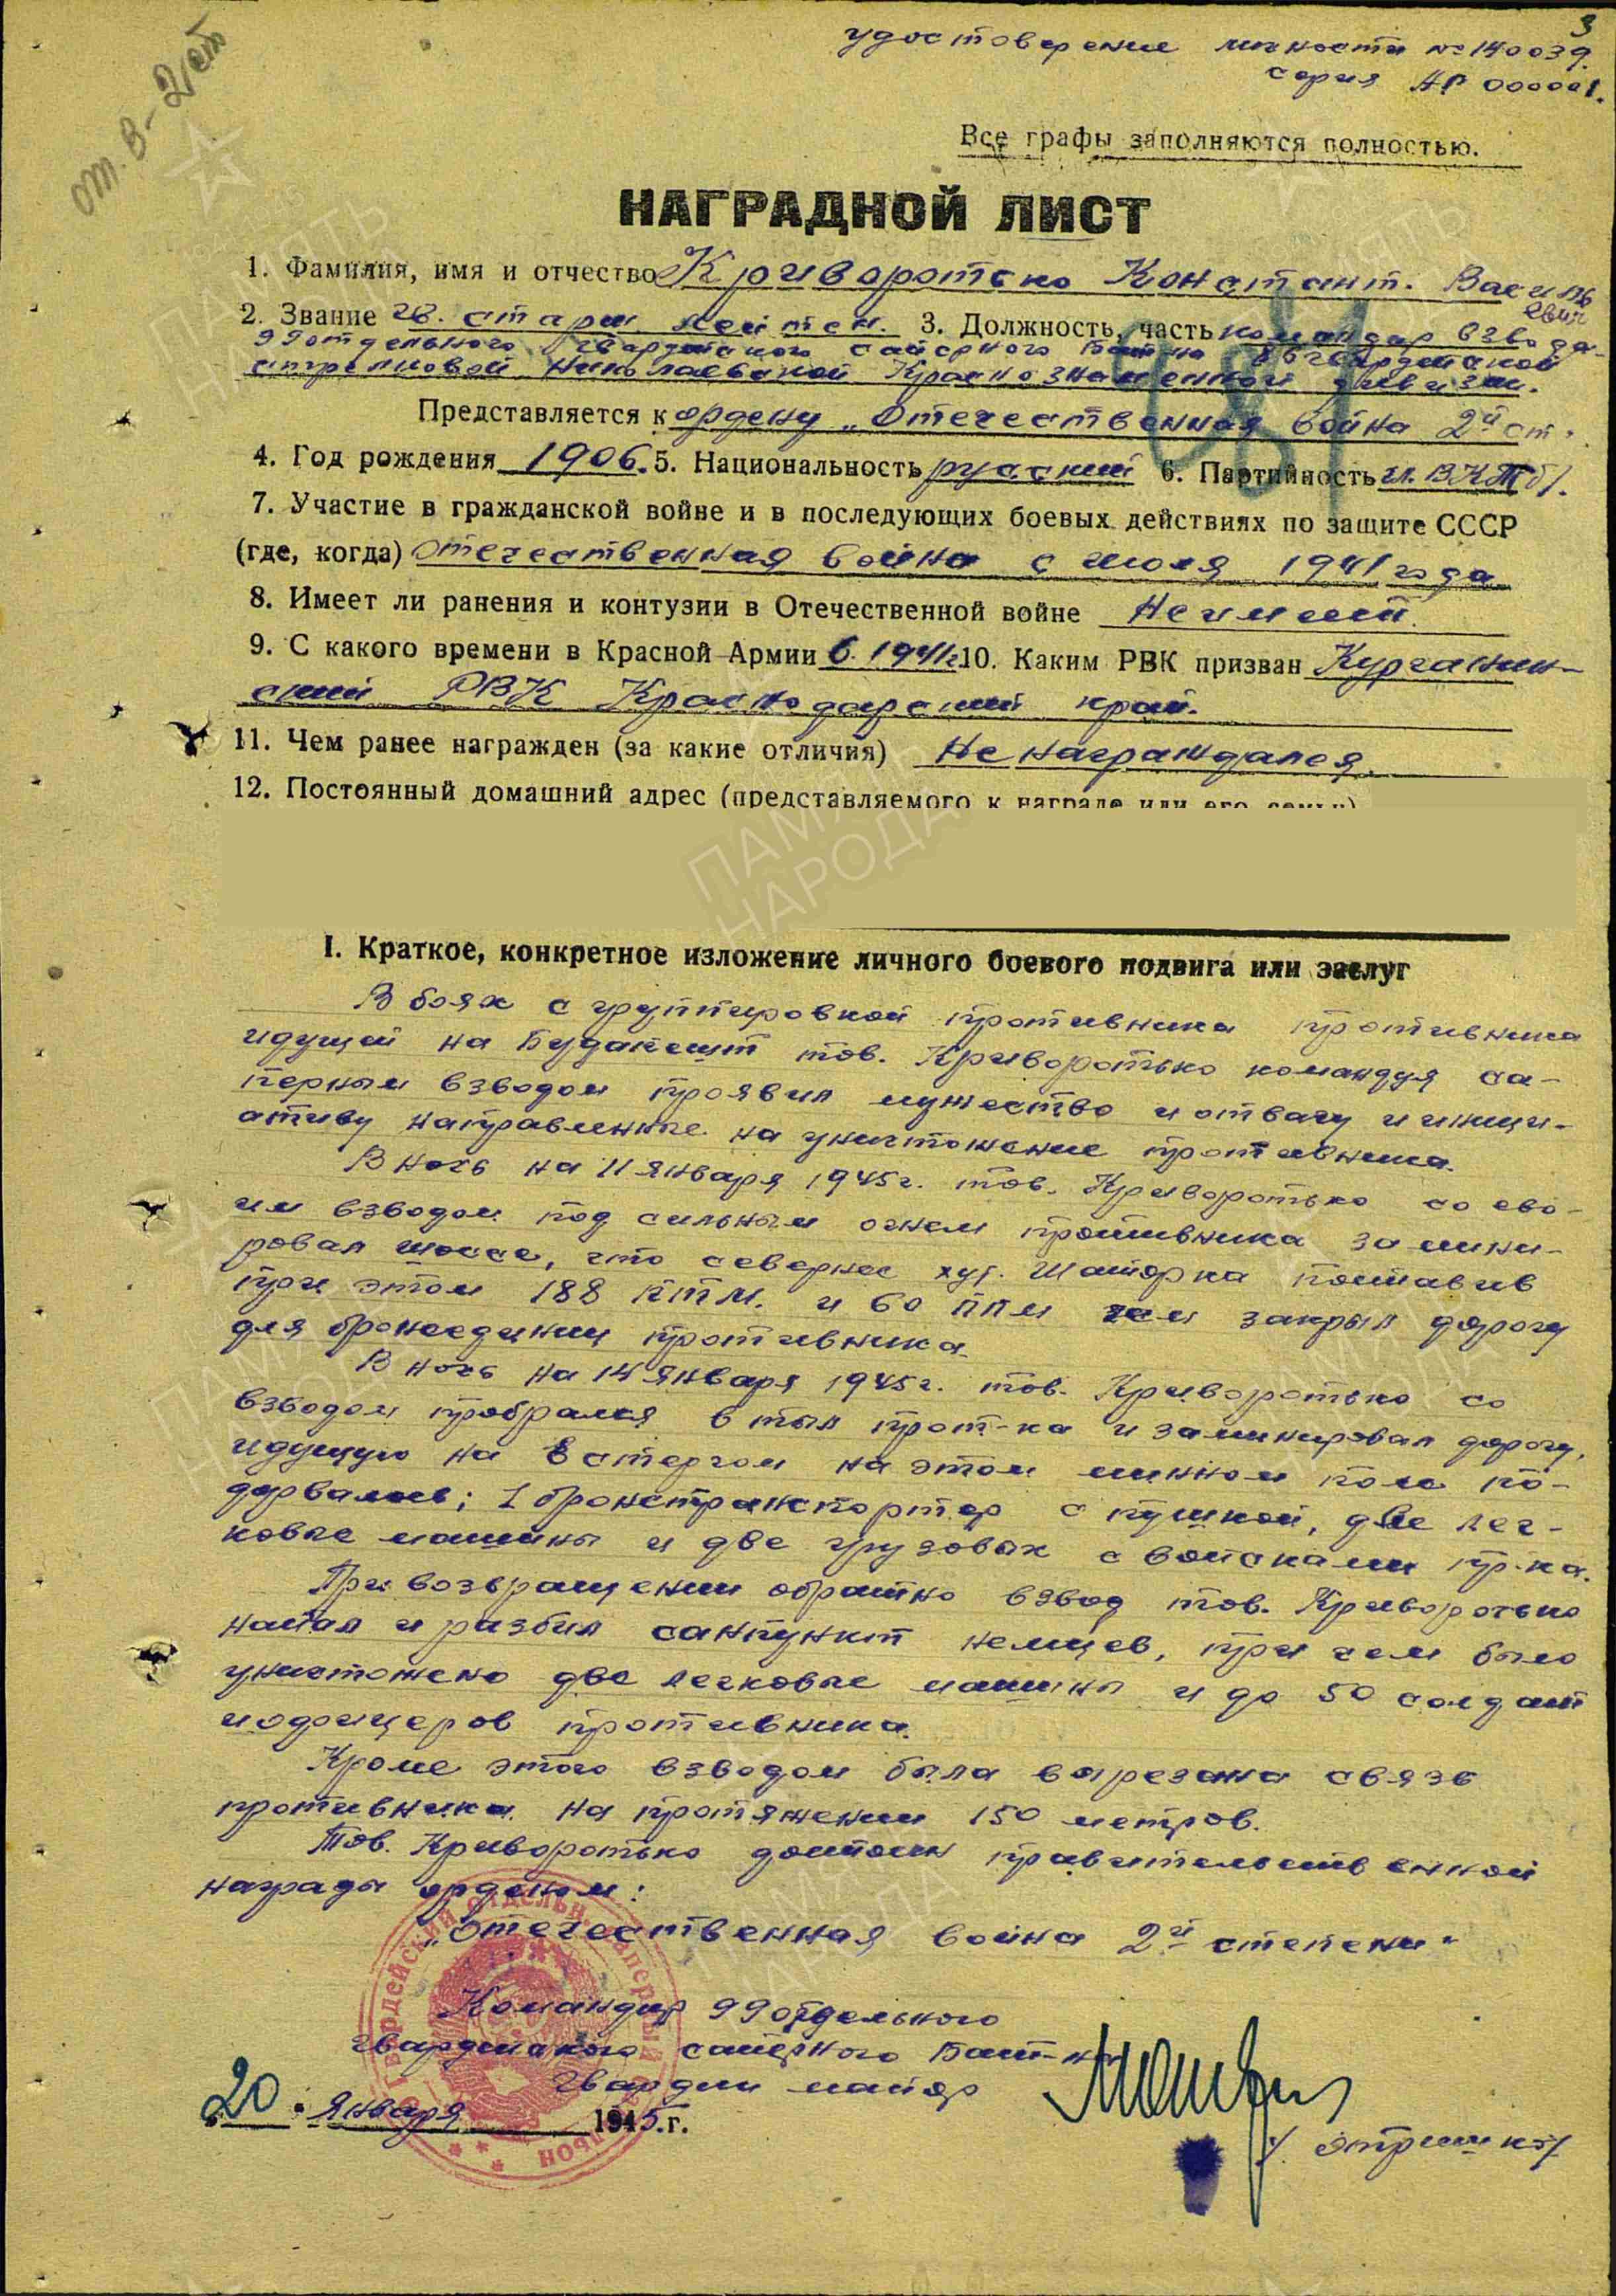 3
удостоверение личности № 140039.
серия АР 000001.
от. В-2 ст
Все графы заполняются полностью.
НАГРАДНОЙ ЛИСТ
1. Фамилия, имя и отчество Криворотько Константин. Василь
евич
2. Звание гв. старш. лейтен. 3. Должность, часть командир взвода
99 отдельного гвардейского саперного бат-на 86 гвардейской
стрелковой Николаевской Краснознаменной дивизии.
Представляется к ордену „Отечественная война 2й ст.
4. Год рождения 1906. 5. Национальность русский 6. Партийность чл. ВКП(б).
7. Участие в гражданской войне и в последующих боевых действиях по защите СССР
(где, когда) Отечественная война с июля 1941 года
8. Имеет ли ранения и контузии в Отечественной войне Не имеет
9. С какого времени в Красной Армии 6. 1941г. 10. Каким РВК призван Курганин-
ский РВК Краснодарский край.
11. Чем ранее награжден (за какие отличия) Не награждался.
12. Постоянный домашний адрес (представляемого к награде или его семьи)
I. Краткое, конкретное изложение личного боевого подвига или заслуг
В боях с группировкой противника противника
идущей на Будапешт тов. Криворотько командуя са-
перным взводом проявил мужество и отвагу и иници-
ативу направленные на уничтожение противника.
В ночь на 11 января 1945г. тов. Криворотько со сво-
им взводом под сильным огнем противника замини-
ровал шоссе, что севернее хут. Шаторка поставив
при этом 188 ПТМ. и 60 ППМ чем закрыл дорогу
для бронеединиц противника
В ночь на 14 января 1945г. тов. Криворотько со
взводом пробрался в тыл прот-ка и заминировал дорогу,
идущую на Эстергом на этом минном поле по-
дорвалось; 1 бронетранспортер с пушкой, две лег-
ковые машины и две грузовых с войсками пр-ка.
При возвращении обратно взвод тов. Криворотько
напал и разбил санпункт немцев, при чем было
уничтожено две легковые машины и до 50 солдат
и офицеров противника.
Кроме этого взводом была вырезана связь
противника на протяжении 150 метров.
Тов. Криворотько достоин правительственной
награды орденом:
„Отечественная война 2й степени"
Командир 99 отдельного
гвардейского саперного бат-на
гвардии майор
20 января 1945.г.